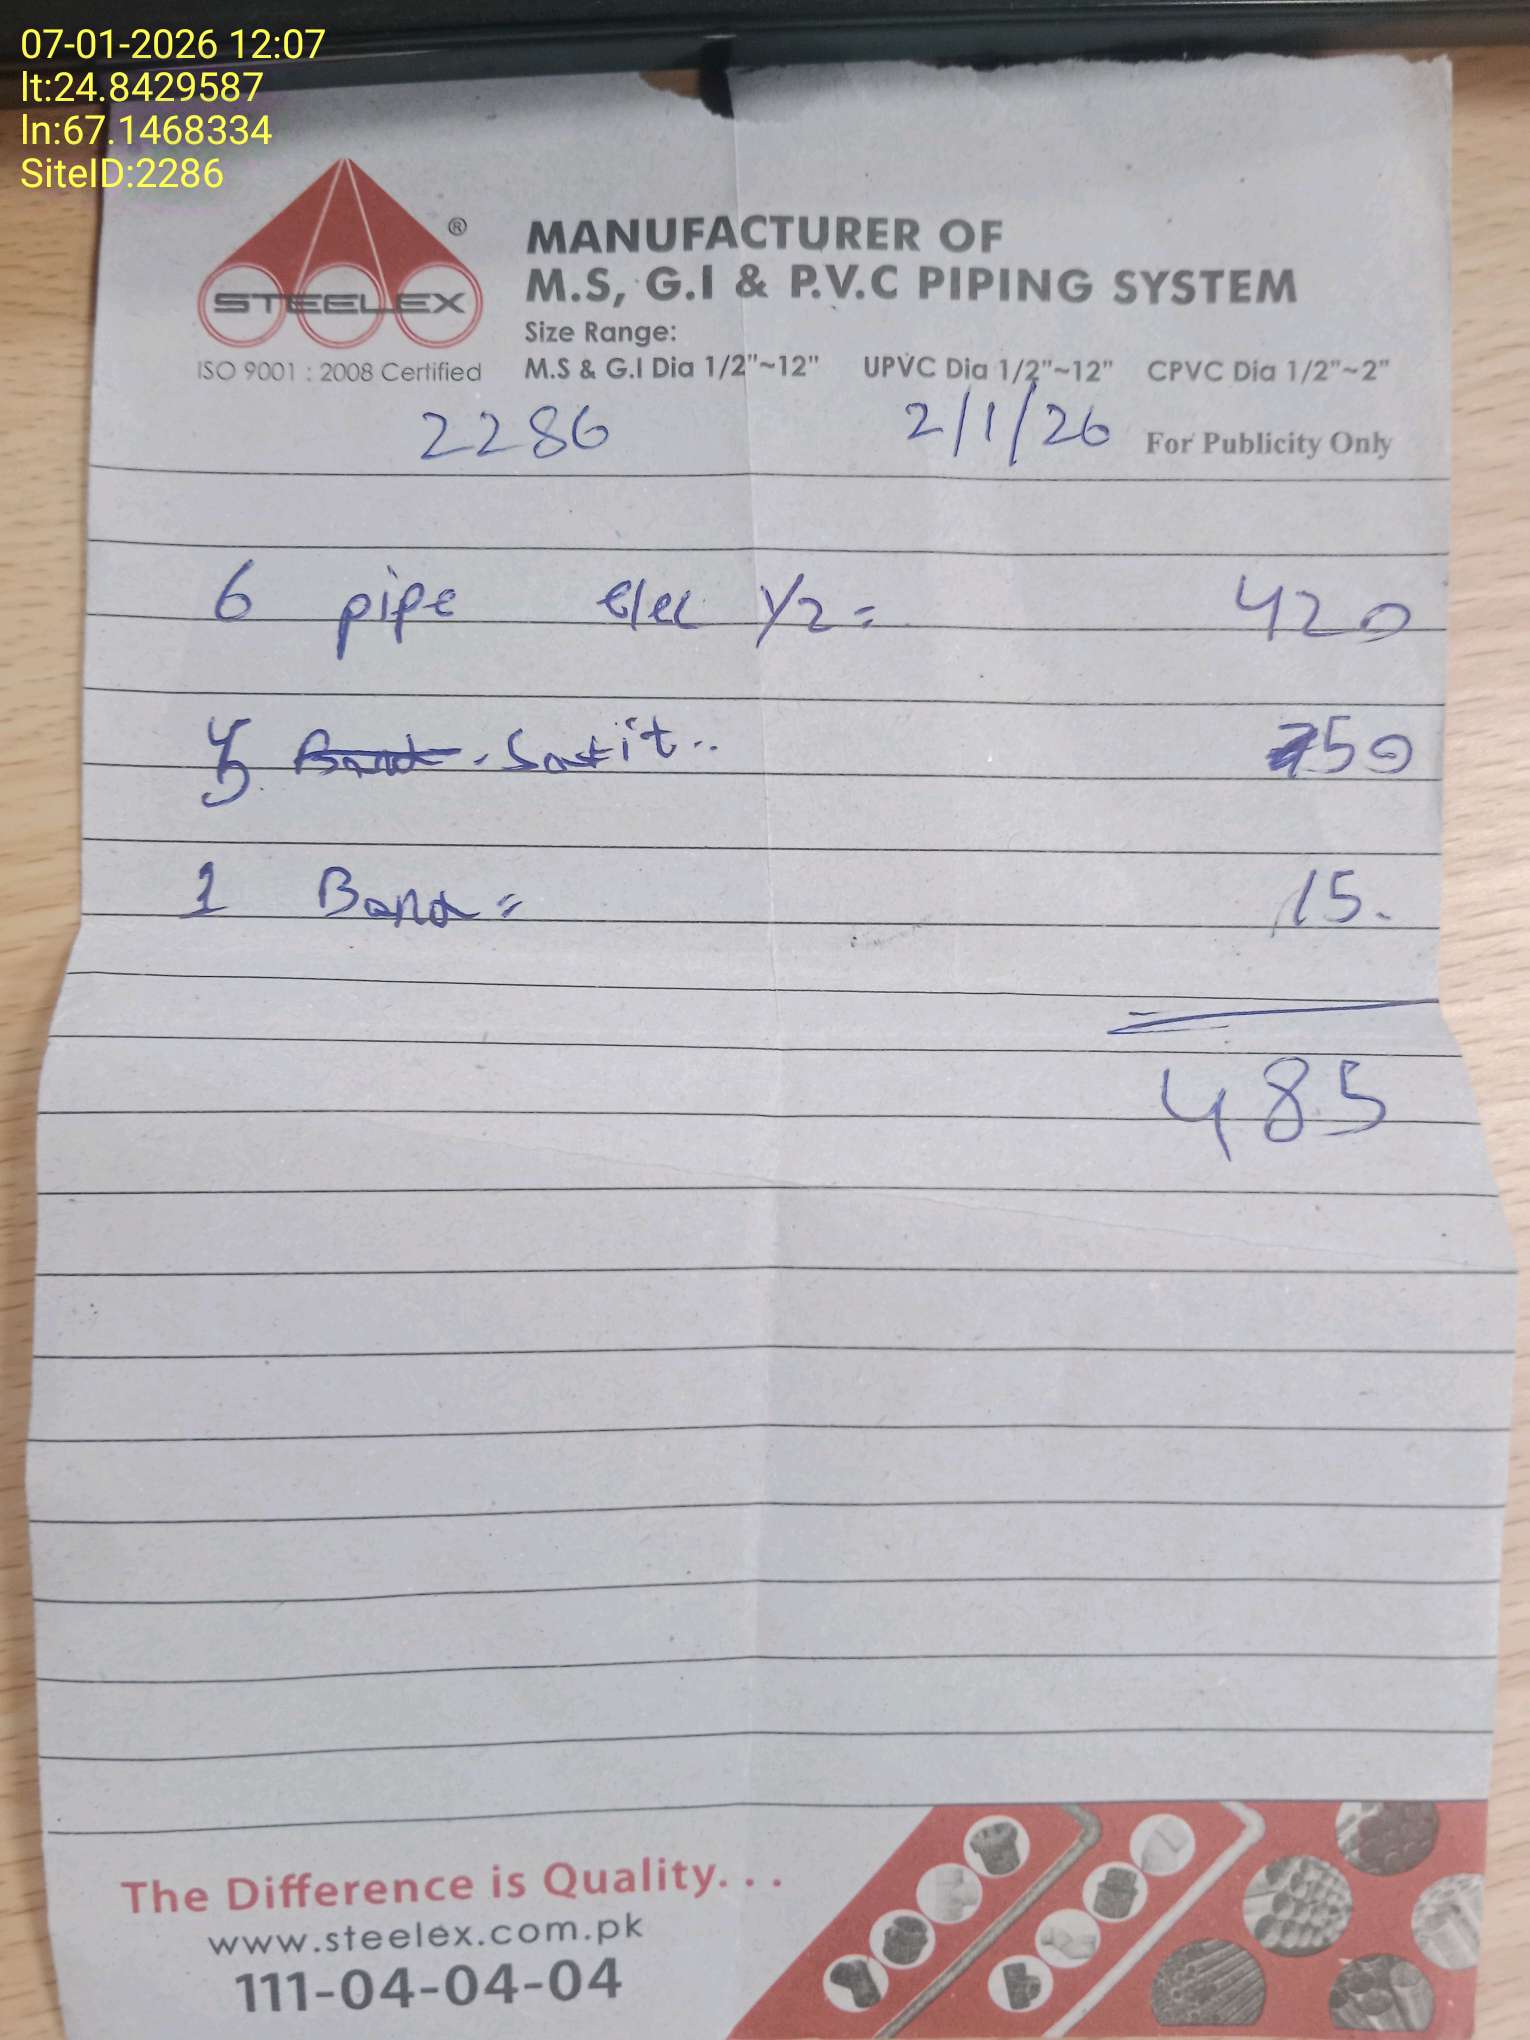 07-01-2026 12:07
lt:24.8429587
ln:67.1468334
SiteID:2286
STEELEX ®
ISO 9001 : 2008 Certified
MANUFACTURER OF
M.S, G.I & P.V.C PIPING SYSTEM
Size Range:
M.S & G.I Dia 1/2"~12" UPVC Dia 1/2"~12" CPVC Dia 1/2"~2"
For Publicity Only
2286 2/1/26
6 pipe elec 1/2 = 420
5 Sokit .. 50
1 Band = 15.
485
The Difference is Quality. . .
www.steelex.com.pk
111-04-04-04